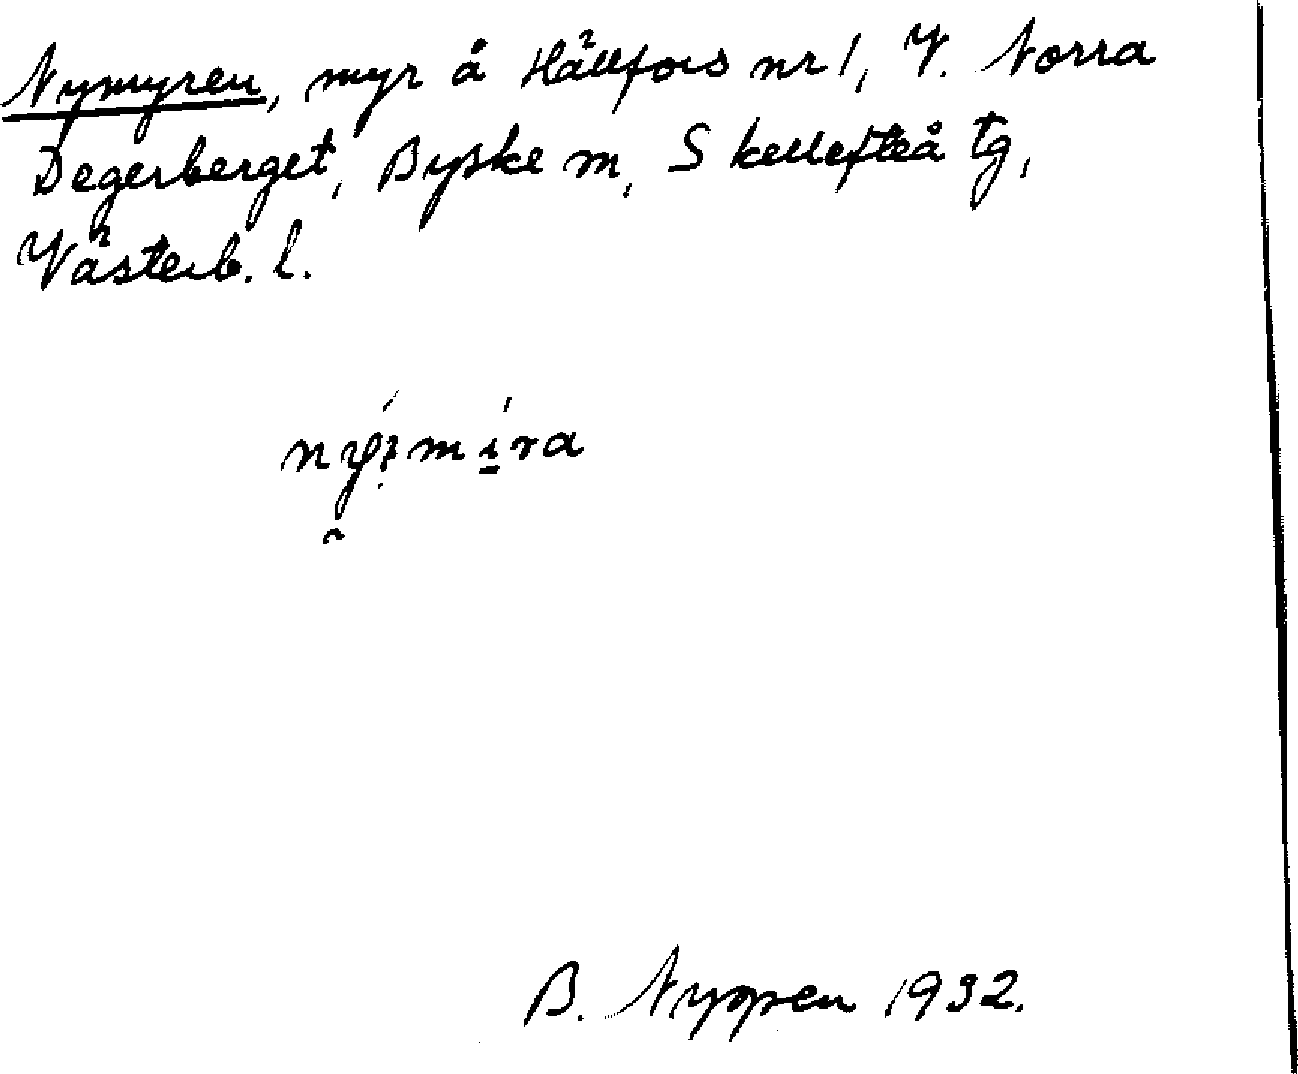 Nymyren, myr å Hällfors nr 1, V. Norra
Degerberget, Byske sn, Skellefteå tg,
Västerb. l.
B. Nyman 1932.